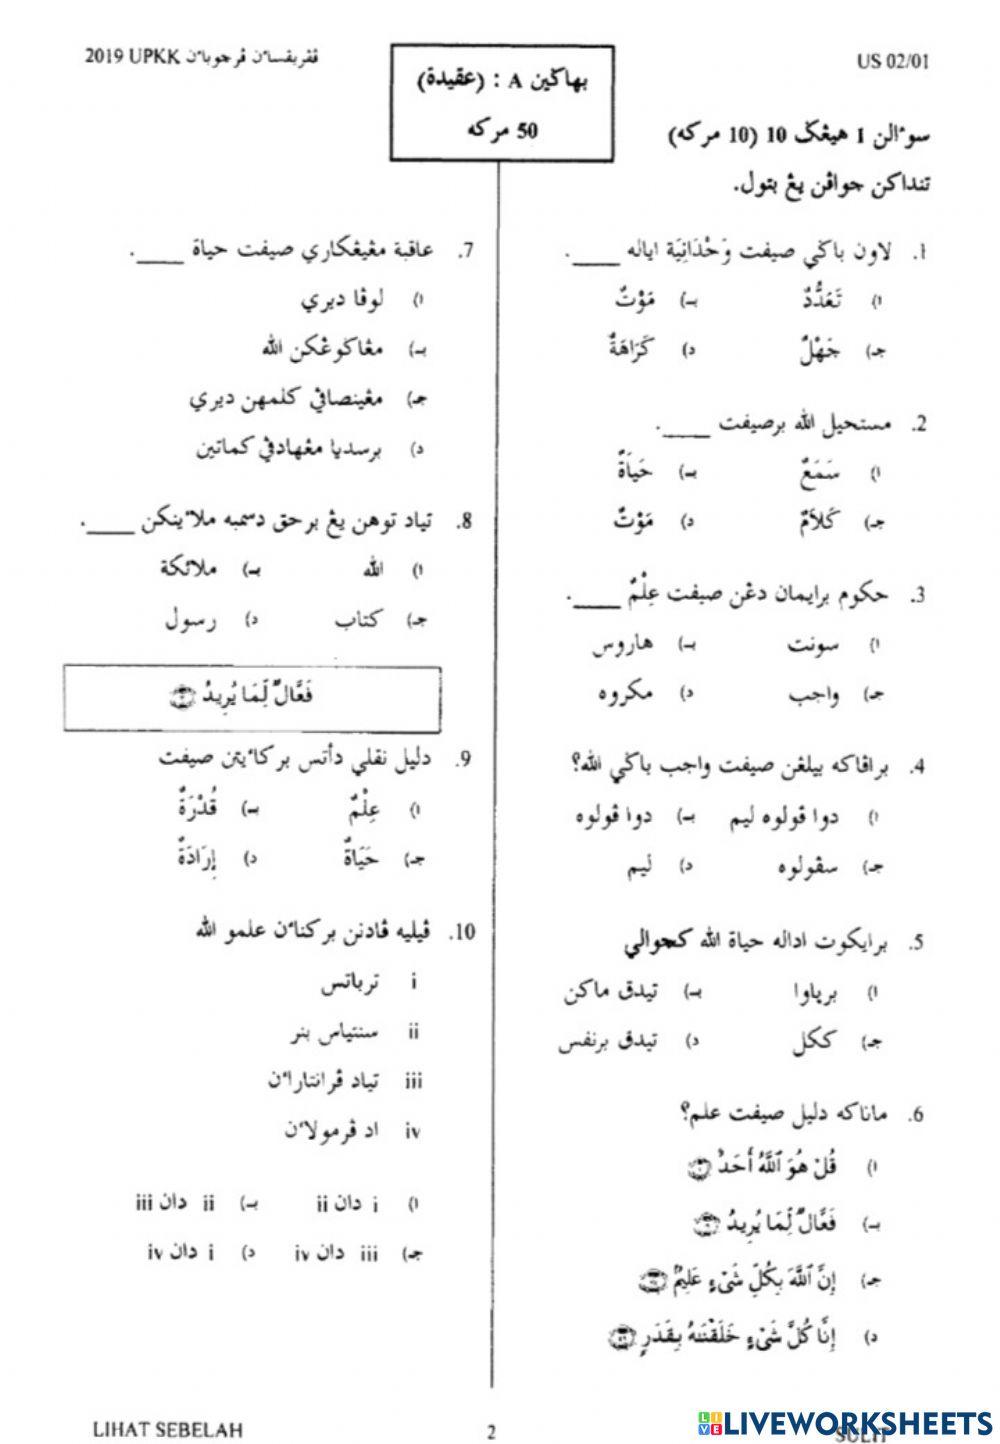 US 02/01
ڤڤريقساءن ڤرچوباءن UPKK 2019
بهاݢين A : (عقيدة)
50 مركه
سوءالن 1 هيڠݢ 10 (10 مركه)
تنداكن جواڤن يڠ بتول.
1. لاون باݢي صيفت وَحْدَانِيَة اياله ____.
ا) تَعَدُّدٌ ب) مَوْتٌ
ج) جَهْلٌ د) كَرَاهَةٌ
2. مستحيل الله برصيفت ____.
ا) سَمَعٌ ب) حَيَاةٌ
ج) كَلاَمٌ د) مَوْتٌ
3. حكوم برايمان دڠن صيفت عِلْمٌ ____.
ا) سونت ب) هاروس
ج) واجب د) مكروه
4. براڤاكه بيلڠن صيفت واجب باݢي الله؟
ا) دوا ڤولوه ليم ب) دوا ڤولوه
ج) سڤولوه د) ليم
5. برايكوت اداله حياة الله كچوالي
ا) برياوا ب) تيدق ماكن
ج) ككل د) تيدق برنفس
6. ماناكه دليل صيفت علم؟
ا) قُلْ هُوَ ٱللَّهُ أَحَدٌ
ب) فَعَّالٌ لِّمَا يُرِيدُ
ج) إِنَّ ٱللَّهَ بِكُلِّ شَىْءٍ عَلِيمٌ
د) إِنَّا كُلَّ شَىْءٍ خَلَقْنَٰهُ بِقَدَرٍ
7. عاقبة مڠيڠكاري صيفت حياة ____.
ا) لوڤا ديري
ب) مڠاݢوڠكن الله
ج) مڠينصافي كلمهن ديري
د) برسديا مڠهادڤي كماتين
8. تياد توهن يڠ برحق دسمبه ملاءينكن ____.
ا) الله ب) ملائكة
ج) كتاب د) رسول
فَعَّالٌ لِّمَا يُرِيدُ
9. دليل نقلي دأتس بركاءيتن صيفت
ا) عِلْمٌ ب) قُدْرَةٌ
ج) حَيَاةٌ د) إِرَادَةٌ
10. ڤيليه ڤادنن بركناءن علمو الله
i ترباتس
ii سنتياس بنر
iii تياد ڤرانتاراءن
iv اد ڤرمولاءن
ا) i دان ii ب) ii دان iii
ج) iii دان iv د) i دان iv
LIHAT SEBELAH
2
SULIT
LIVEWORKSHEETS